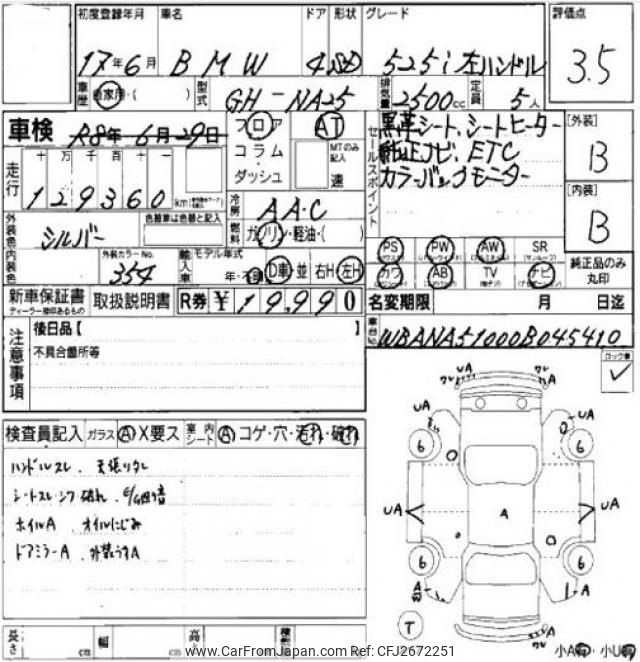 初度登録年月 車名 ドア 形状 グレード 評価点
17年6月 BMW 4 SD 525i左ハンドル 3.5
車歴 自家用・( ) 型式 GH-NA25 排気量 2500cc 定員 5人
車検 R8年6月29日 フロア AT 黒革シート、シートヒーター [外装]
コラム MTのみ記入 セールスポイント 純正ナビ、ETC B
走行 十万千百十一 ダッシュ 速 カラーバックモニター
129360km [内装]
外装色 シルバー 色替車は色替と記入 冷房 AAC B
燃料 ガソリン・軽油・( )
内装色 外装カラーNo. 354 輸入車 モデル年式 年・不明 D車・並 右H・左H
PS PW AW SR 純正品のみ丸印
カワ AB TV ナビ
新車保証書 取扱説明書 R券 ¥19,990 名変期限 月 日迄
ディーラー捺印あるもの
注意事項 後日品【 】 車台No. WBANA51000B045410
不具合箇所等 ロック車
検査員記入 ガラス A X要ス 室内シート A コゲ・穴・汚れ・破れ
ハンドルスレ、天張りタレ
シートスレ・シワ 破れ、
ホイルA、オイルにじみ
ドアミラーA、外装うすA
UA A
UA UA
6 6
UA A UA
6 6
A A
T
小A 小U
長さ cm 幅 cm 高
www.CarFromJapan.com Ref: CFJ2672251